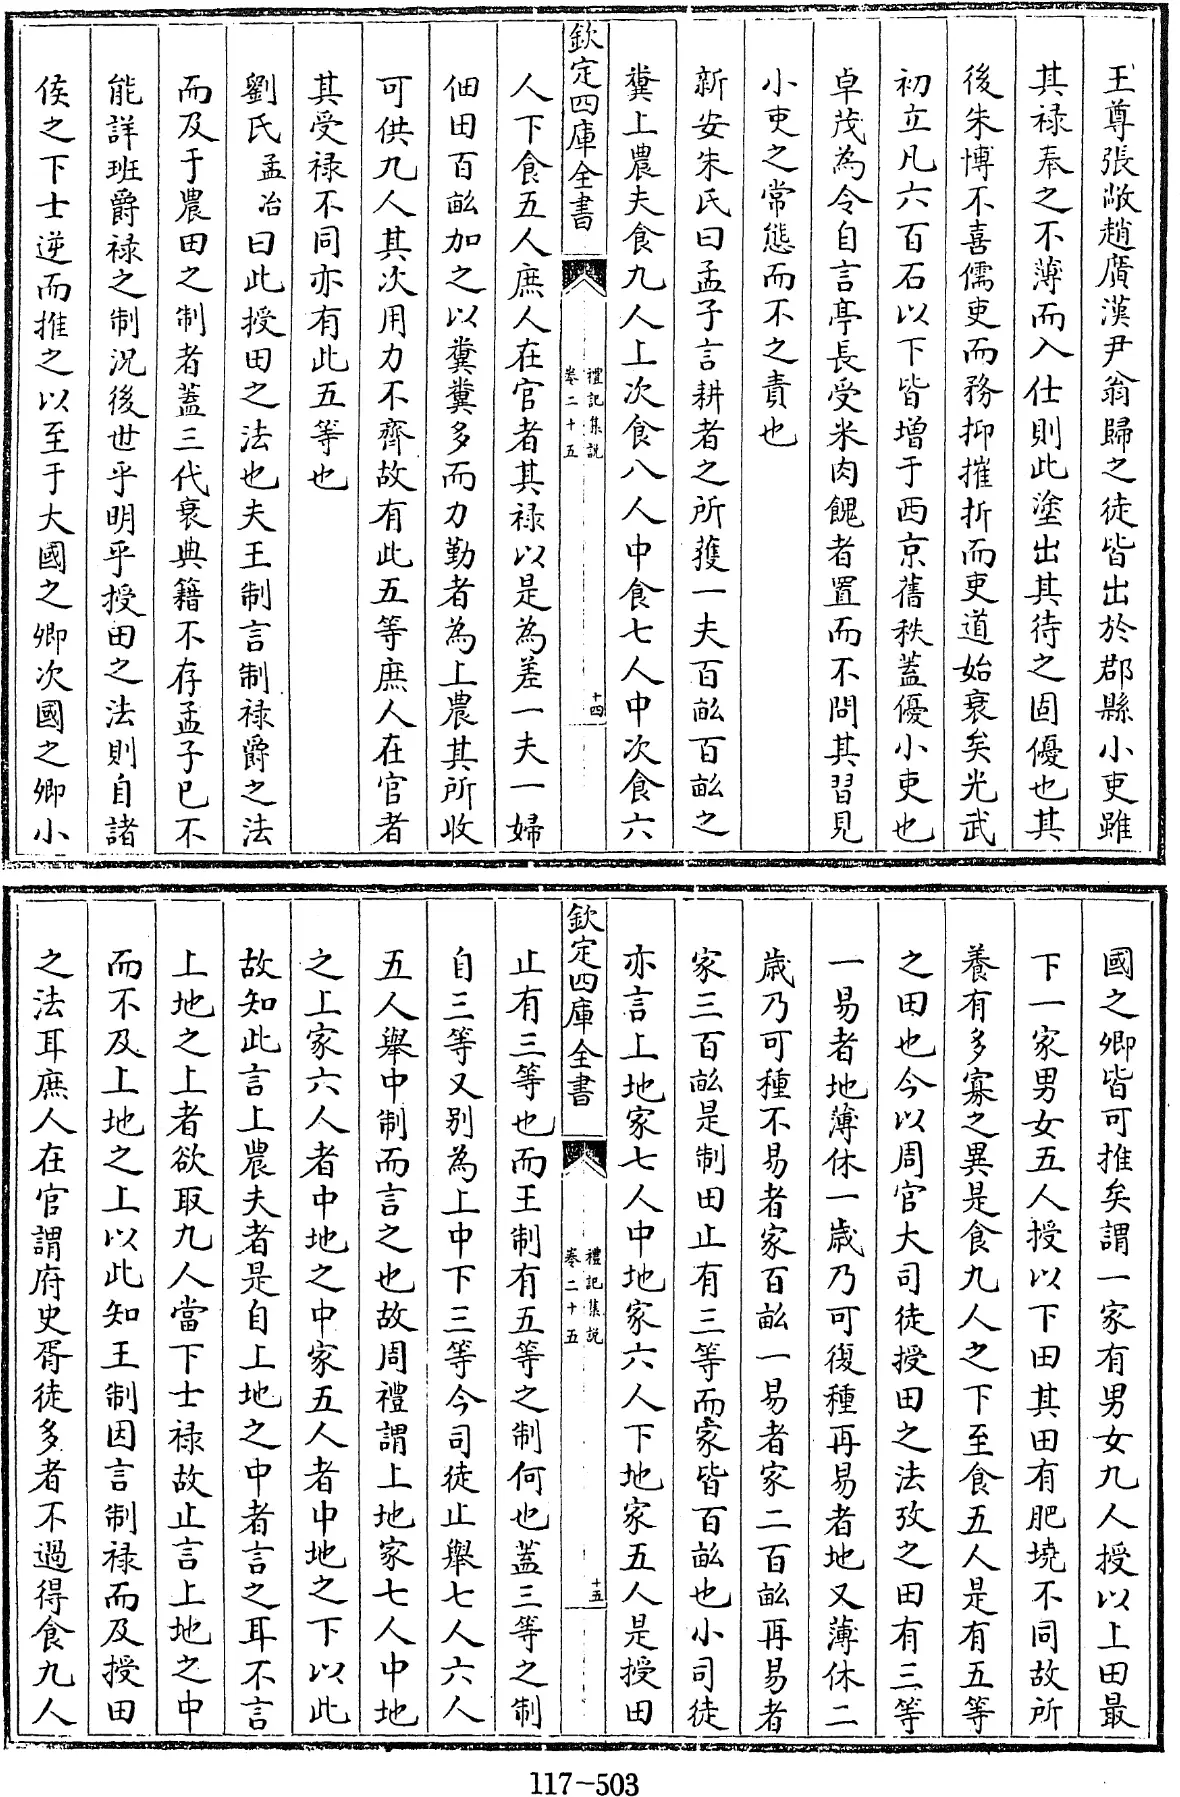 王尊張敞趙廣漢尹翁歸之徒皆出於郡縣小吏雖
其禄奉之不薄而入仕則此塗出其待之固優也其
後朱博不喜儒吏而務抑摧折而吏道始衰矣光武
初立凡六百石以下皆增于西京舊秩蓋優小吏也
卓茂為令自言亭長受米肉餽者置而不問其習見
小吏之常態而不之責也
新安朱氏曰孟子言耕者之所獲一夫百畝百畝之
糞上農夫食九人上次食八人中食七人中次食六
欽定四庫全書
禮記集說
卷二十五
十四
人下食五人庶人在官者其禄以是為差一夫一婦
佃田百畝加之以糞糞多而力勤者為上農其所收
可供九人其次用力不齊故有此五等庶人在官者
其受禄不同亦有此五等也
劉氏孟冶曰此授田之法也夫王制言制禄爵之法
而及于農田之制者蓋三代衰典籍不存孟子已不
能詳班爵禄之制況後世乎明乎授田之法則自諸
侯之下士逆而推之以至于大國之卿次國之卿小
國之卿皆可推矣謂一家有男女九人授以上田最
下一家男女五人授以下田其田有肥墝不同故所
養有多寡之異是食九人之下至食五人是有五等
之田也今以周官大司徒授田之法攷之田有三等
一易者地薄休一歲乃可復種再易者地又薄休二
歲乃可種不易者家百畝一易者家二百畝再易者
家三百畝是制田止有三等而家皆百畝也小司徒
亦言上地家七人中地家六人下地家五人是授田
欽定四庫全書
禮記集說
卷二十五
十五
止有三等也而王制有五等之制何也蓋三等之制
自三等又别為上中下三等今司徒止舉七人六人
五人舉中制而言之也故周禮謂上地家七人中地
之上家六人者中地之中家五人者中地之下以此
故知此言上農夫者是自上地之中者言之耳不言
上地之上者欲取九人當下士禄故止言上地之中
而不及上地之上以此知王制因言制禄而及授田
之法耳庶人在官謂府史胥徒多者不過得食九人
117-503